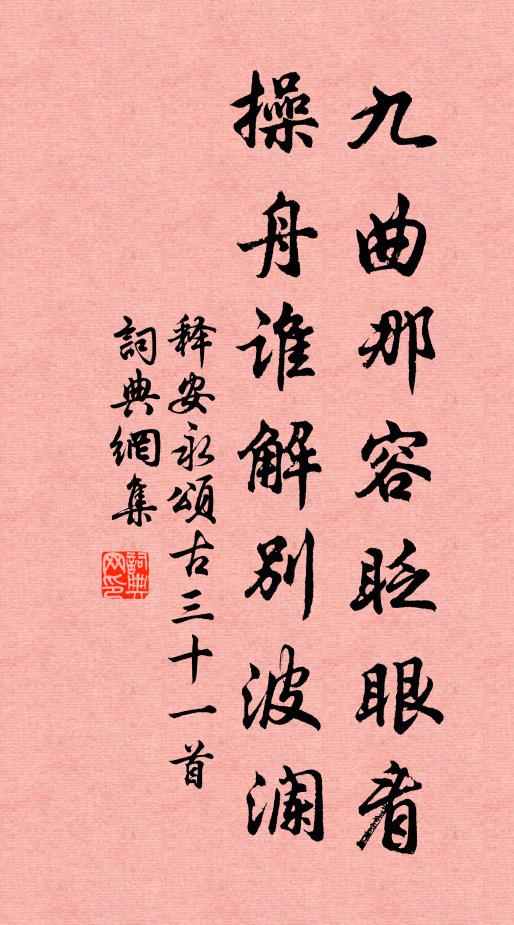 九曲那容眨眼看
操舟谁解别波澜
释安永頌古三十一首
詞典網集
詞典
网印